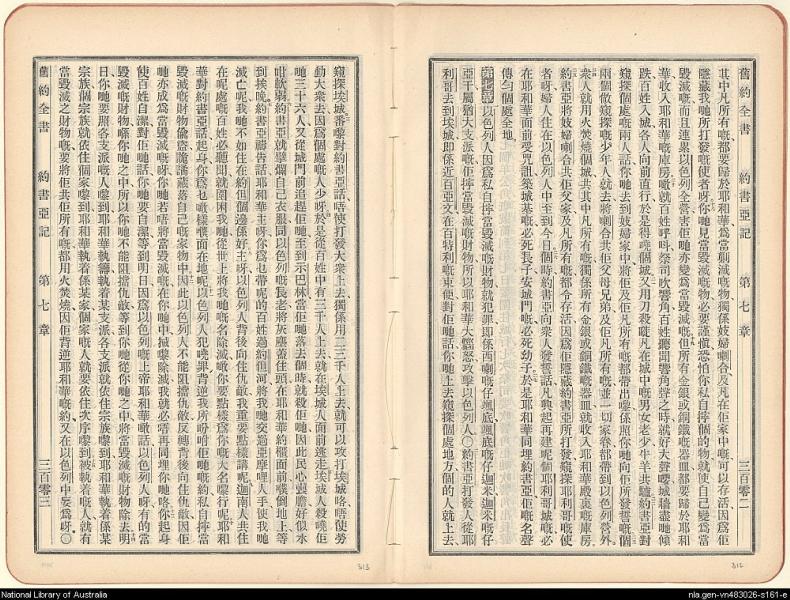 舊約全書 約書亞記 第七章 三百零二
其中凡所有嘅都要歸於耶和華爲當剿滅嘅物獨係妓婦喇合及凡在佢家中嘅可以存活因爲佢
隱藏我哋所打發嘅使者呀你哋見當毀滅嘅物必要謹愼恐怕你私自捽個的物就使自己變爲當
毀滅嘅而且連累以色列全營害佢哋亦變爲當毀滅嘅但所有金銀或銅鐵嘅器皿都要歸於耶和
華收入耶和華嘅庫房噉就百姓呼呌祭司吹響角百姓聽聞響角之時就好大聲嘐城牆盡哋傾
跌百姓入城各人向前直行於是得嘵個城又用刀殺嗮凡在城中嘅男女老少牛羊共驢約書亞對
窺探個處嘅兩人話你哋去到妓婦家中將佢及佢凡所有嘅都帶出嚟係照你哋向佢所發誓嘅個
兩個做窺探嘅少年人就去將喇合共佢父母兄弟及佢凡所有嘅並一切家眷都帶到以色列營外
衆人就用火焚燒個城共其中凡所有嘅獨係所有金銀或銅鐵嘅器皿就收入耶和華殿裏嘅庫房
約書亞將妓婦喇合共佢父家及凡所有嘅都令存活因爲佢隱藏約書亞所打發窺探耶利哥嘅使
者呀婦人住在以色列人中至到今日個時約書亞向衆人發誓話凡興起再建呢個耶利哥城嘅必
在耶和華面前受咒詛築城基嘅必死長子安城門嘅必死幼子於是耶和華同埋約書亞佢嘅名聲
傳勻個處全地
第七章以色列人因爲私自捽當毀滅嘅財物就犯罪即係西喇嘅仔𠺘底𠺘底嘅仔迦米迦米嘅仔
亞干屬猶大支派嘅佢捽當毀滅嘅財物所以耶和華大嬲怒攻擊以色列人〇約書亞打發人從耶
利哥去到埃城即係近百亞文在百特利嘅東便對佢哋話你哋上去窺探個處地方個的人就上去
窺探埃城番嚟對約書亞話唔使打發大衆上去獨係用二三千人上去就可以攻打埃城咯唔使勞
動大衆去因爲個處嘅人少呀於是從百姓中有三千人上去就在埃城人面前逃走埃城人殺嘵佢
哋三十六人又從城門前追趕佢哋至到示巴林當佢哋落去個時就殺佢哋因此民心喪膽好似水
咁軟弱約書亞就擘爛自己衣服同以色列嘅長老將灰塵蓋住頭在耶和華約櫃面前噗倒地上等
到挨晚約書亞禱告話耶和華主呀你爲乜帶呢的百姓過約但河將我哋交過亞摩哩人手使我哋
滅亡呢我哋不如住在約但個邊係好主呀以色列人背後向住仇敵我重要點樣講呢迦南人共住
在呢處嘅百姓必聽聞就圍困我哋從世上將我哋嘅名除滅噉你要點樣爲你嘅大名嚟行呢耶和
華對約書亞話起身你爲乜噉樣噗面在地呢以色列人犯嘵罪背逆我所吩咐佢哋嘅約私自捽當
毀滅嘅財物偸盜詭譎藏落自己嘅家物中因此以色列人不能阻擋仇敵反轉背後向住仇敵因佢
哋亦成爲當毀滅嘅呀你若唔將當毀滅嘅在你哋中搣嚟除滅我就必唔再同埋你哋咯你起身
使百姓自潔對佢哋話你哋要自潔等到明日因爲以色列嘅上帝耶和華噉話以色列人呀有的當
毀滅嘅財物喺你哋之中所以你哋不能阻擋仇敵等到你哋從你哋之中將當毀滅嘅財物除去明
日你哋要照各支派嘅人嚟到耶和華執籌執着某支派各支派就依住宗族嚟到耶和華執着係某
宗族個宗族就依住個家嚟到耶和華執着係某家個家人就要依住次序嚟到被執着嘅人就有
當毀滅之財物嘅要將佢共佢所有嘅都用火焚燒因佢背逆耶和華嘅約又在以色列中妄爲呀〇
舊約全書 約書亞記 第七章 三百零三
312
313
National Library of Australia
nla.gen-vn483026-s161-e